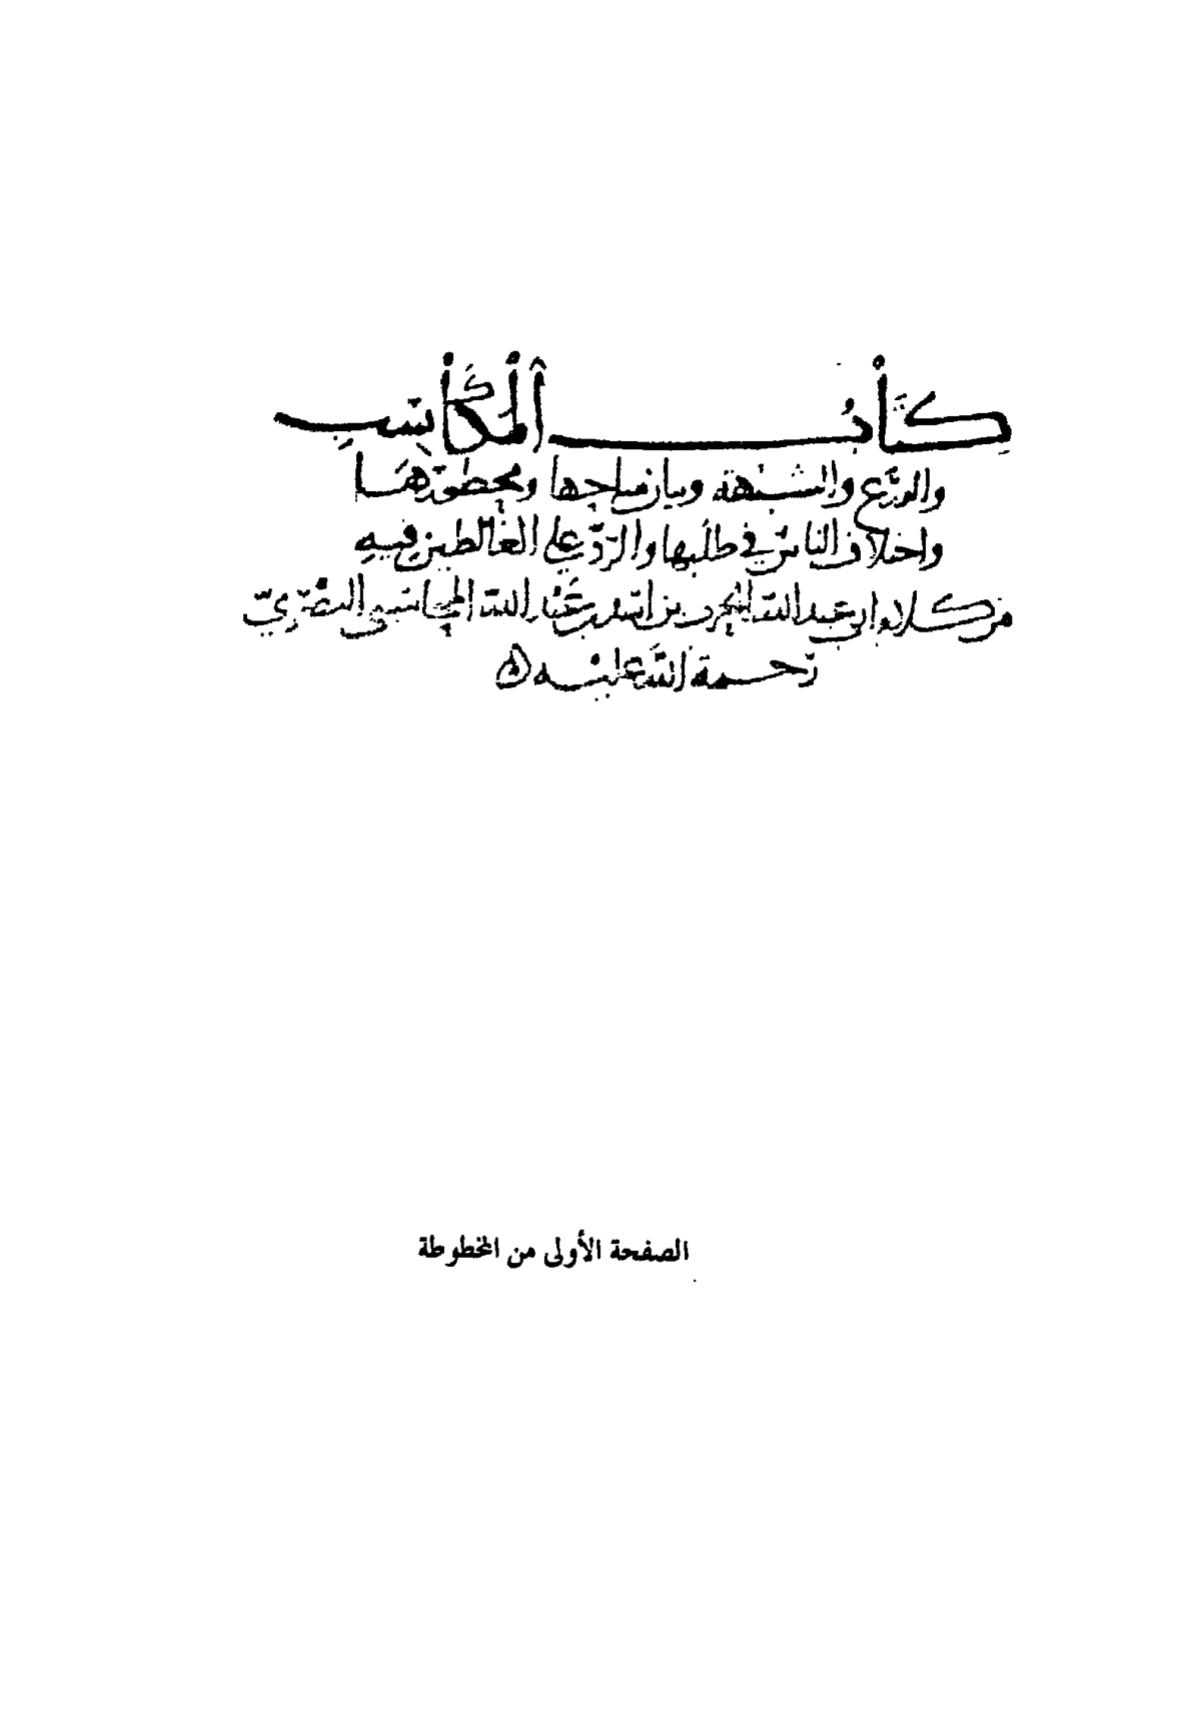 كتابُ المكاسبِ
والورع والشبهة وبيان مباحها ومحظورها
واختلاف الناس في طلبها والردّ على الغالطين فيه
من كلام ابي عبد الله الحرث بن اسد بن عبد الله المحاسبي البصري
رحمة الله عليه
الصفحة الأولى من المخطوطة